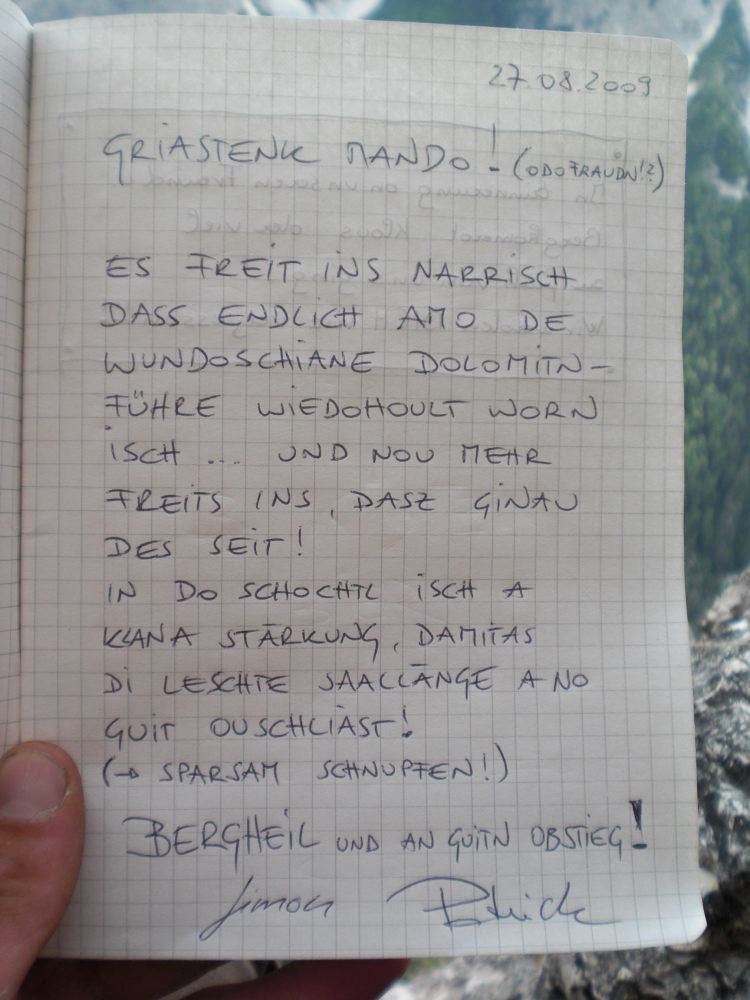 27.08.2009
GRIASTENK MANDO! (ODO FRAUDN!?)
ES FREIT INS NARRISCH
DASS ENDLICH AMO DE
WUNDOSCHIANE DOLOMITN-
FÜHRE WIEDOHOULT WORN
ISCH ... UND NOU MEHR
FREITS INS, DASZ GINAU
DES SEIT!
IN DO SCHOCHTL ISCH A
KLANA STÄRKUNG, DAMITAS
DI LESCHTE SAALLÄNGE A NO
GUIT OUSCHLIAST!
(→ SPARSAM SCHNUPFEN!)
BERGHEIL UND AN GUITN OBSTIEG!
Simon Patrick